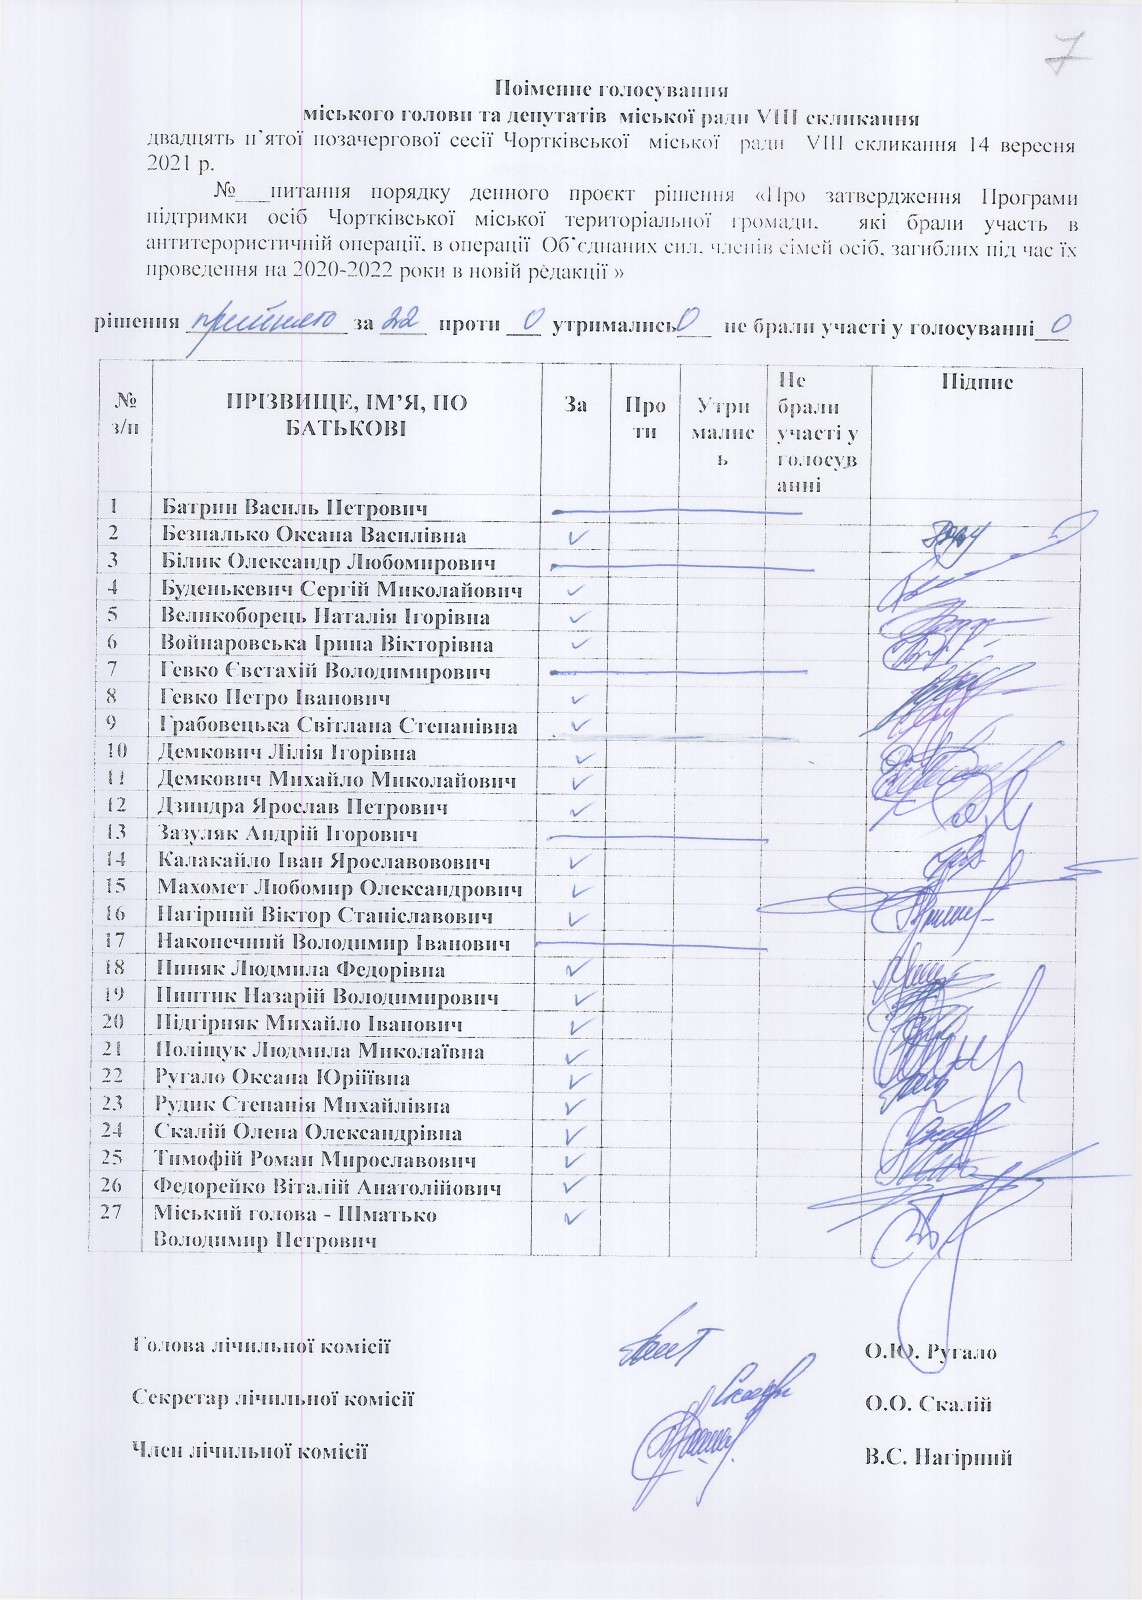 7
Поіменне голосування
міського голови та депутатів міської ради VIII скликання
двадцять п`ятої позачергової сесії Чортківської міської ради VIII скликання 14 вересня
2021 р.
№___питання порядку денного проєкт рішення «Про затвердження Програми
підтримки осіб Чортківської міської територіальної громади, які брали участь в
антитерористичній операції, в операції Об’єднаних сил, членів сімей осіб, загиблих під час їх
проведення на 2020-2022 роки в новій редакції »
рішення прийнято за 22 проти 0 утримались 0 не брали участі у голосуванні 0
№ з/п ПРІЗВИЩЕ, ІМ’Я, ПО БАТЬКОВІ За Про ти Утри малис ь Не брали участі у голосув анні Підпис
1 Батрин Василь Петрович
2 Безпалько Оксана Василівна ✓
3 Білик Олександр Любомирович
4 Буденькевич Сергій Миколайович ✓
5 Великоборець Наталія Ігорівна ✓
6 Войнаровська Ірина Вікторівна ✓
7 Гевко Євстахій Володимирович
8 Гевко Петро Іванович ✓
9 Грабовецька Світлана Степанівна ✓
10 Демкович Лілія Ігорівна ✓
11 Демкович Михайло Миколайович ✓
12 Дзиндра Ярослав Петрович ✓
13 Зазуляк Андрій Ігорович
14 Калакайло Іван Ярославовович ✓
15 Махомет Любомир Олександрович ✓
16 Нагірний Віктор Станіславович ✓
17 Наконечний Володимир Іванович
18 Пиняк Людмила Федорівна ✓
19 Пинтик Назарій Володимирович ✓
20 Підгірняк Михайло Іванович ✓
21 Поліщук Людмила Миколаївна ✓
22 Ругало Оксана Юріїївна ✓
23 Рудик Степанія Михайлівна ✓
24 Скалій Олена Олександрівна ✓
25 Тимофій Роман Мирославович ✓
26 Федорейко Віталій Анатолійович ✓
27 Міський голова - Шматько ✓
Володимир Петрович
Голова лічильної комісії О.Ю. Ругало
Секретар лічильної комісії О.О. Скалій
Член лічильної комісії В.С. Нагірний